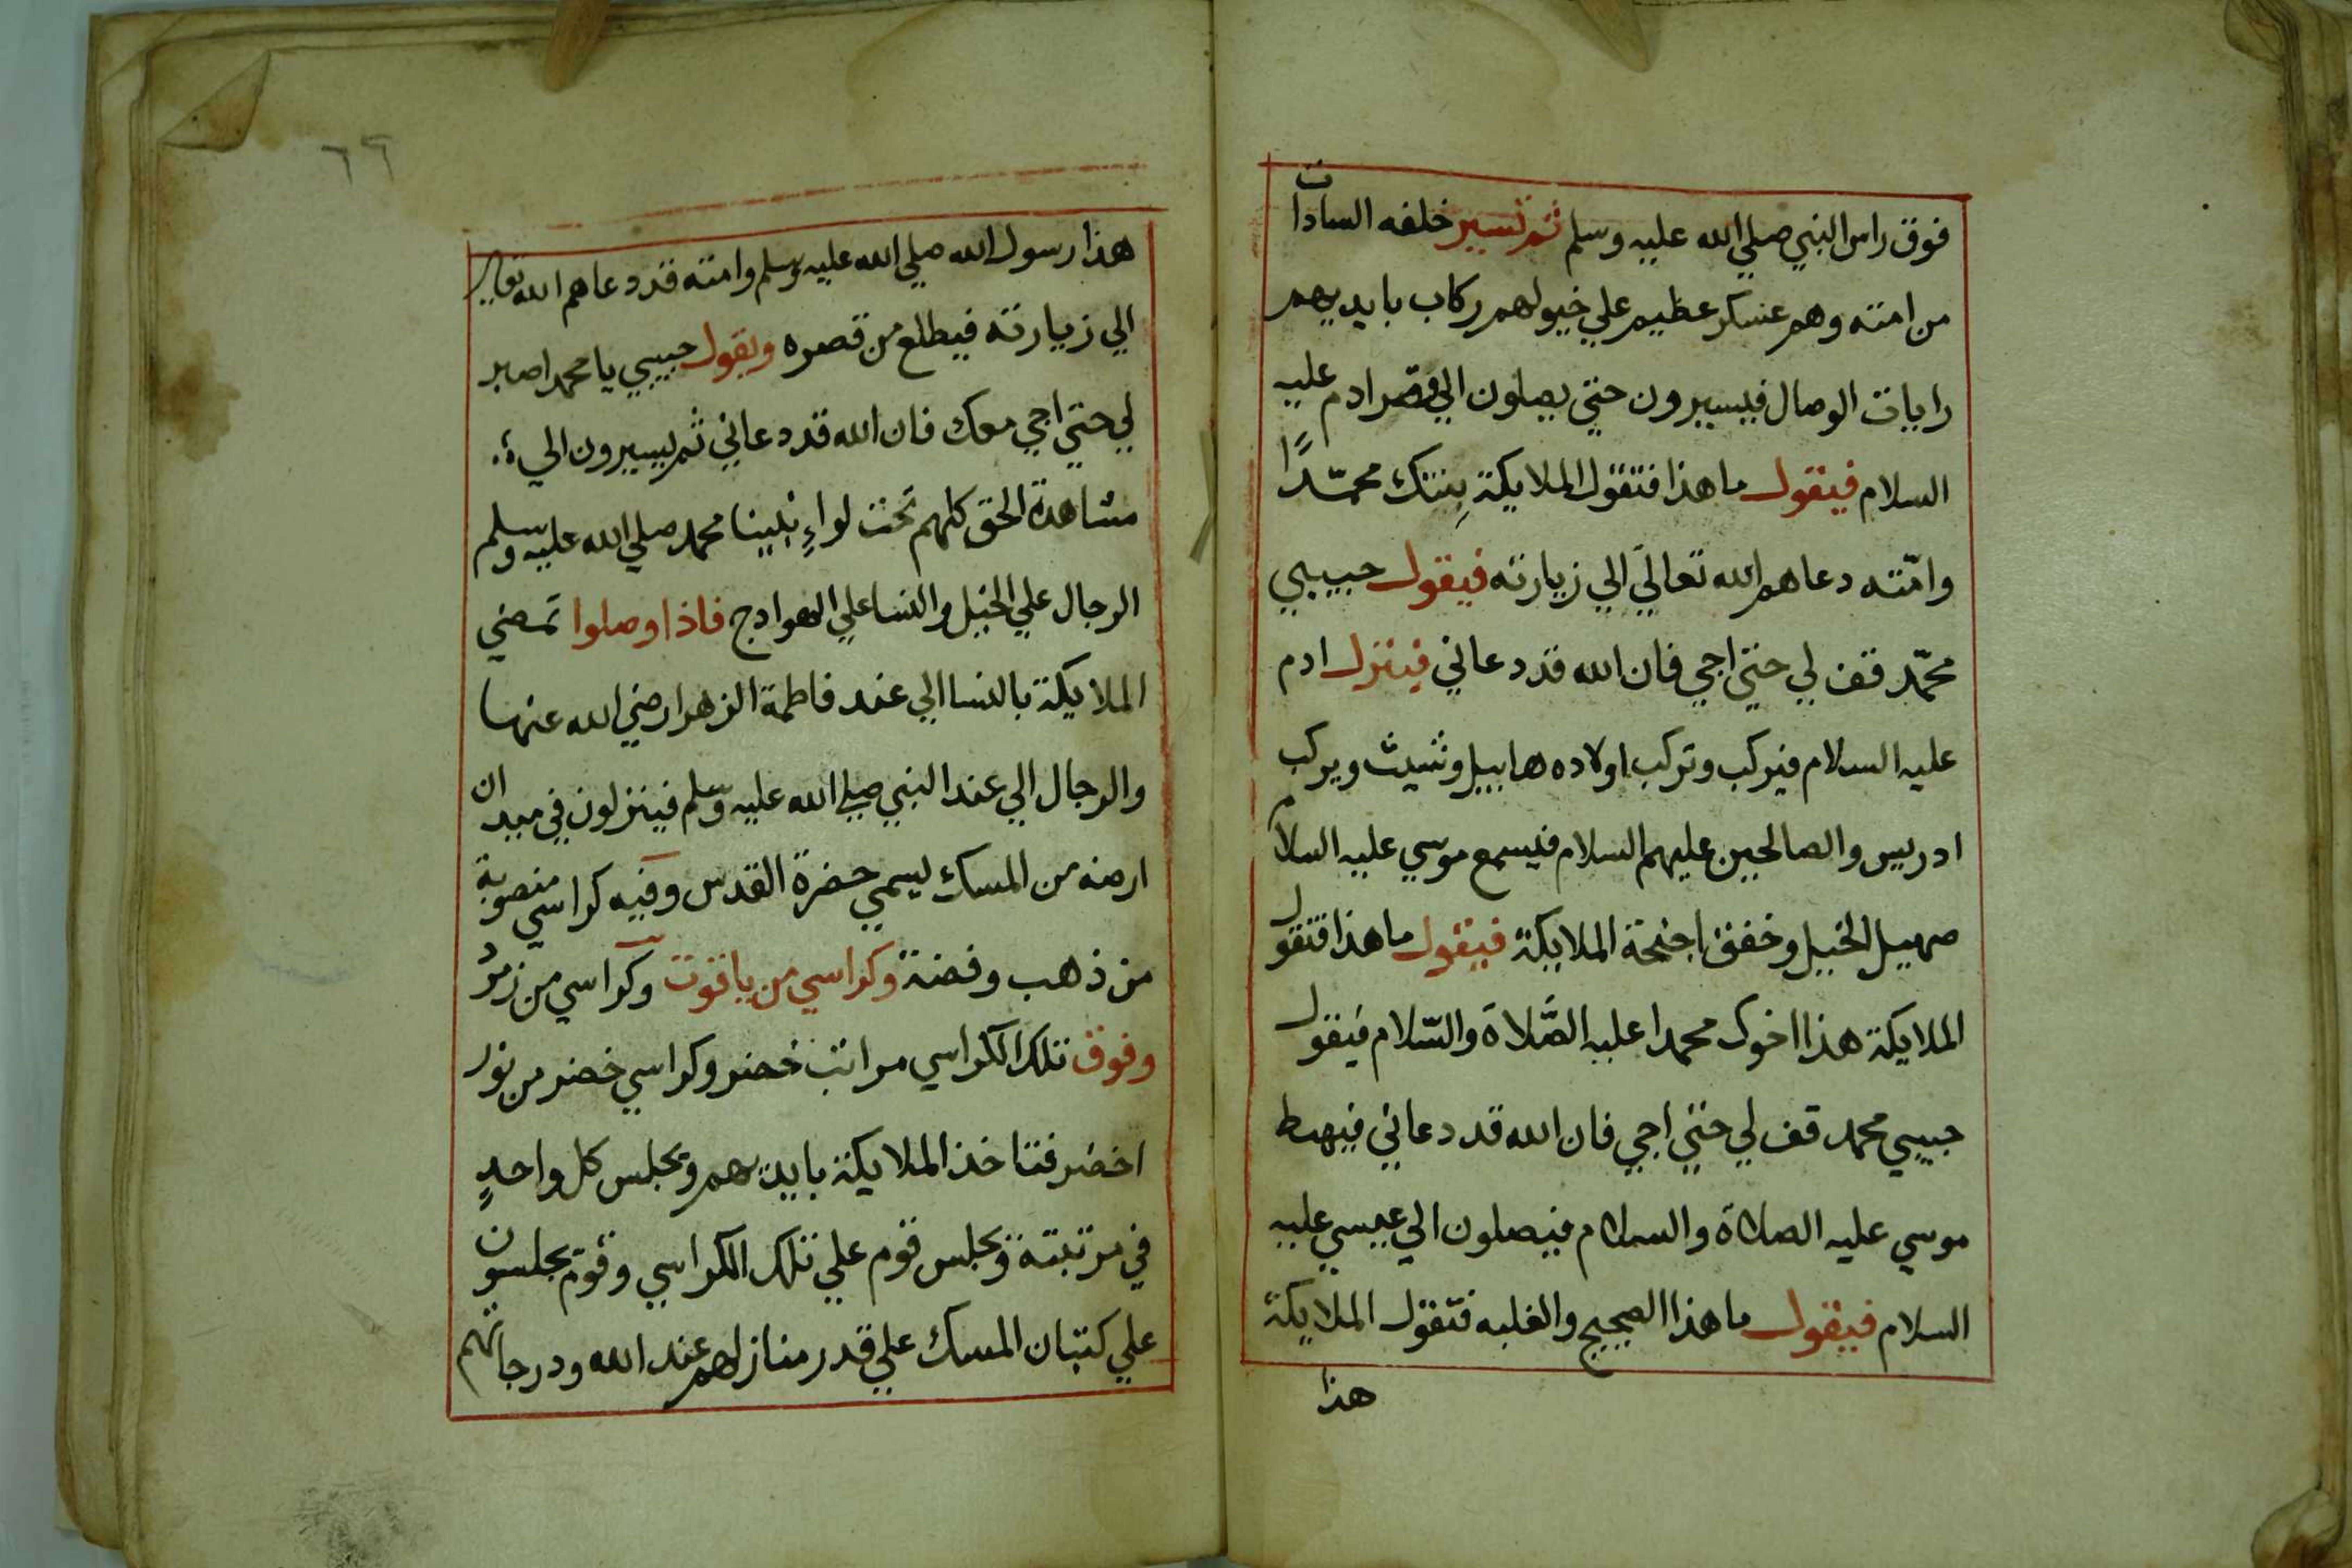 فوق راس النبي صلي الله عليه وسلم ثم تسير خلفه السادات
من امته وهم عسكر عظيم علي خيولهم ركاب بايديهم
رايات الوصال فيسيرون حتي يصلون الي قصر ادم عليه
السلام فيقول ما هذا فتقول الملايكة بنتك محمّدًا
وامّته دعاهم الله تعالي الي زيارته فيقول حبيبي
محمّد قف لي حتي اجي فان الله قد دعاني فينزل ادم
عليه السلام فيركب وتركب اولاده هابيل وشيث ويركب
ادريس والصالحين عليهم السلام فيسمع موسي عليه السلام
صهيل الخيل وخفق اجنحة الملايكة فيقول ما هذا فتقول
الملايكة هذا اخوك محمدا عليه الصّلاة والسّلام فيقول
حبيبي محمد قف لي حتي اجي فان الله قد دعاني فيهبط
موسي عليه الصلاة والسلام فيصلون الي عيسي عليه
السلام فيقول ما هذا الضجيج والغلبه فتقول الملايكة
هذا
٦٦
هذا رسول الله صلي الله عليه وسلم وامته قد دعاهم الله تعالي
الي زيارته فيطلع من قصره ويقول حبيبي يا محمد اصبر
لي حتي اجي معك فان الله قد دعاني ثم يسيرون الي
مشاهدة الحق كلهم تحت لواءِ نبينا محمد صلي الله عليه وسلم
الرجال علي الخيل والنسا علي الهوادج فاذا وصلوا تمضي
الملايكة بالنسا الي عند فاطمة الزهرا رضي الله عنها
والرجال الي عند النبي صلي الله عليه وسلم فينزلون في ميدان
ارضه من المسك يسمي حضرة القدس وفيه كراسي منصوبة
من ذهب وفضة وكراسي من ياقوت وكراسي من زمرد
وفوق تلك الكراسي مراتب خضر وكراسي خضر من نور
اخضر فتاخذ الملايكة بايديهم ويجلس كل واحدٍ
في مرتبته ويجلس قوم علي تلك الكراسي وقوم يجلسون
علي كتبان المسك علي قدر منازلهم عند الله ودرجاتهم